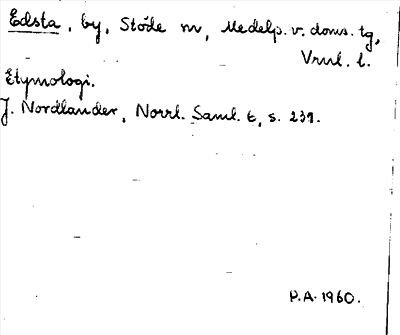 Edsta, by, Stöde sn, Medelp. v. doms. tg,
Vrnl. l.
Etymologi.
J. Nordlander, Norrl. Saml. 6, s. 239.
P.A. 1960.